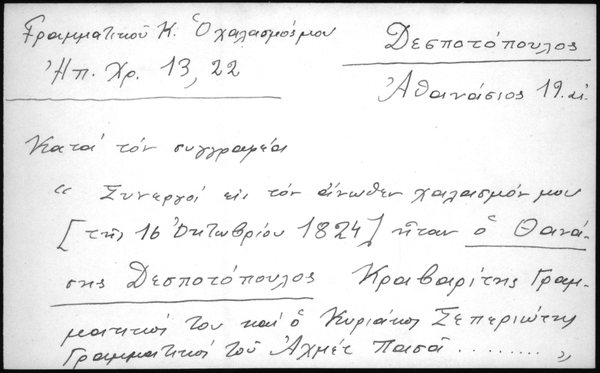 Γραμματικοῦ Κ. Ὁ χαλασμός μου
Ἠπ. Χρ. 13, 22
Δεσποτόπουλος
Ἀθανάσιος 19. αἰ.
Κατά τόν συγγραφέα
“ Συνεργοί εἰς τόν ἄνωθεν χαλασμόν μου
[τῆς 16 Ὀκτωβρίου 1824] ἦταν ὁ Θανά-
σης Δεσποτόπουλος Κραβαρίτης Γραμ-
ματικοί του καί ὁ Κυριάκος Ξεπεριώτης
Γραμματικοί τοῦ Ἀχμέτ Πασᾶ ......... „